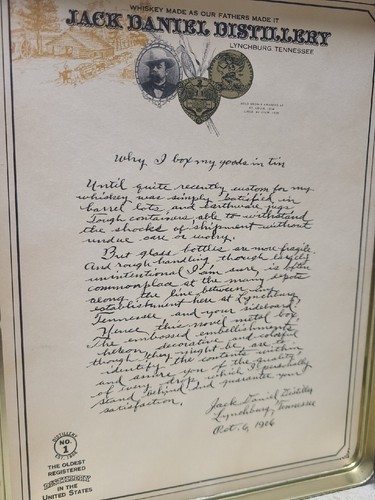 WHISKEY MADE AS OUR FATHERS MADE IT
JACK DANIEL DISTILLERY
LYNCHBURG, TENNESSEE
Why I box my goods in tin
Until quite recently, custom for my
whiskey was simply satisfied in
barrel lots and earthware jugs
Tough containers, able to withstand
the shocks of shipment without
undue care or worry.
But glass bottles are more fragile
And rough handling though largely
unintentional I am sure, is often
commonplace at the many
along the line between my
establishment here at Lynchburg,
Tennessee, and your sideboard.
Hence, this novel metal box.
The embossed embellishments
hereon, decorative and colorful
though they might be, are to
identify the contents within
and assure you of the quality,
of every drop, which I personally
stand behind and guarantee your
satisfaction.
Jack Daniel Distillery
Lynchburg, Tennessee
Oct. 6, 1906
DISTILLERY
NO.
1
THE OLDEST
REGISTERED
DISTILLERY
IN THE
UNITED STATES